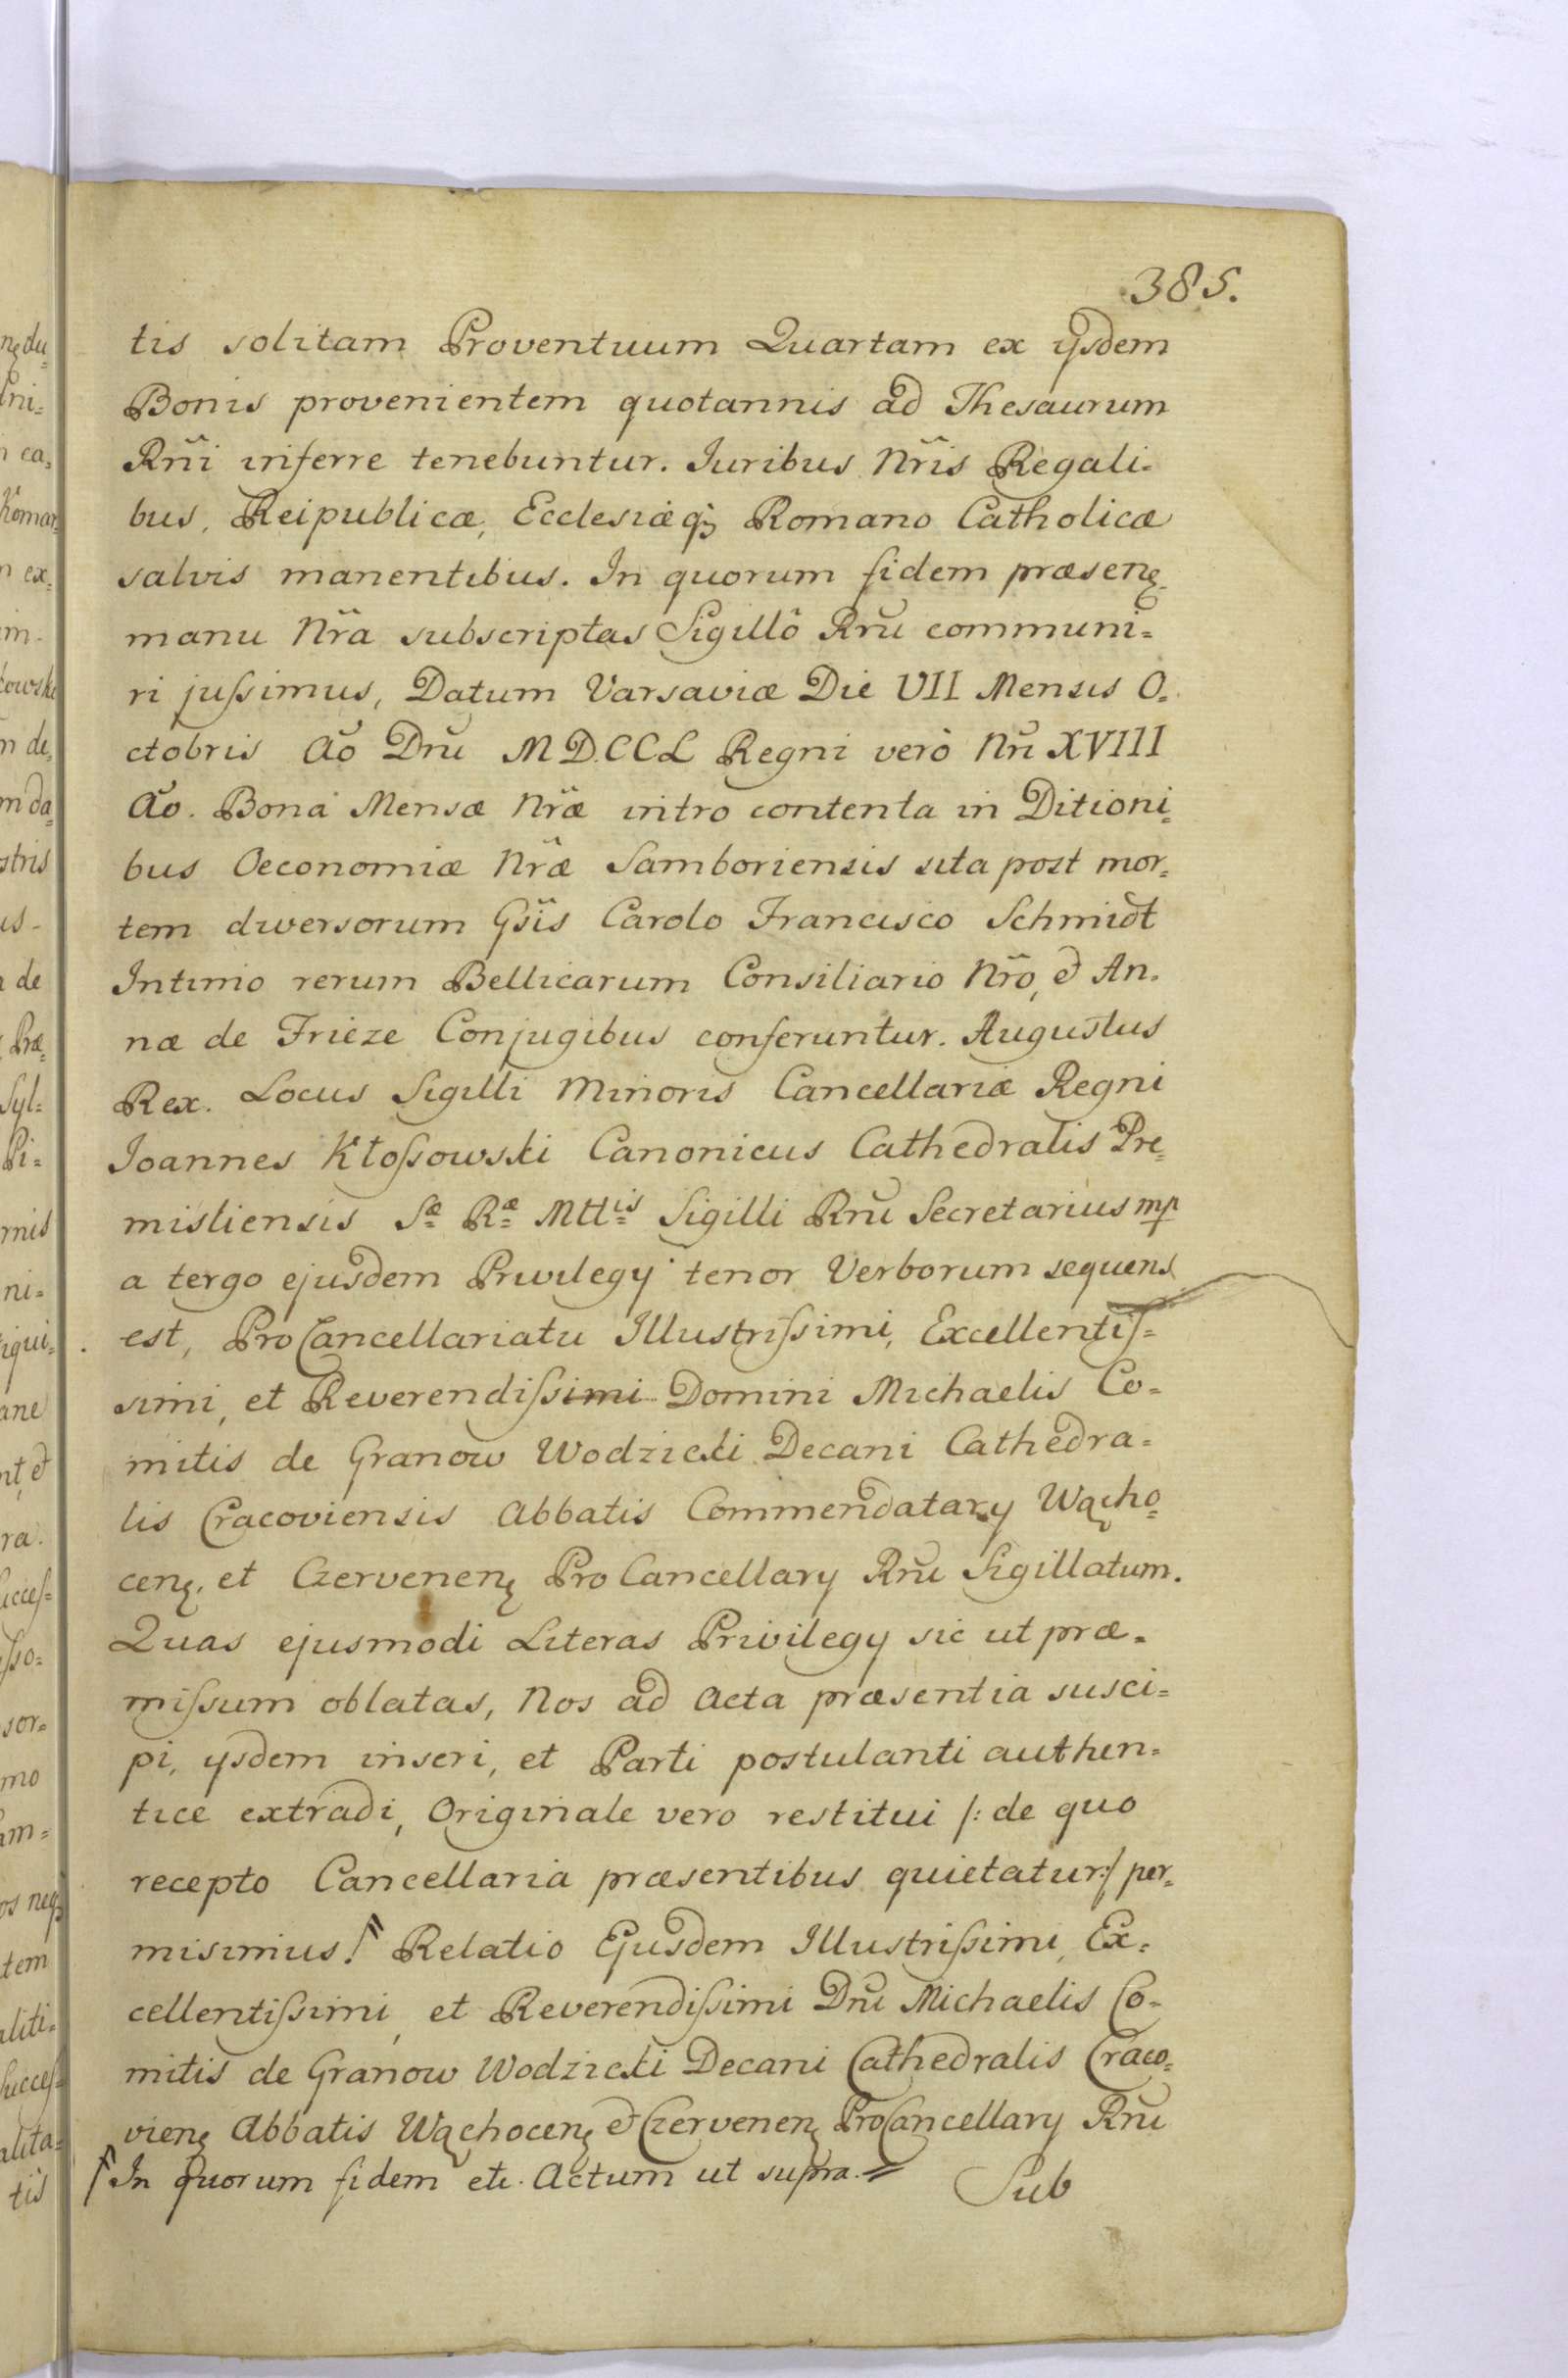 385.
tis solitam Proventuum Quartam ex ijsdem
Bonis provenientem quotannis ad Thesaurum
Rñi inferre tenebuntur. Iuribus Nr̃is Regali=
bus, Reipublicæ, Ecclesiæq; Romano Catholicæ
salvis manentibus. In quorum fidem præsenę
manu Nr̃a subscriptas Sigillô Rñu communi=
ri jussimus, Datum Varsaviæ Die VII Mensis O=
ctobris Aõ Dñu MDCCL Regni verò Nñ XVIII
Aõ. Bona Mensæ Nr̃æ intro contenta in Ditioni=
bus Oeconomiæ Nr̃æ Samboriensis sita post mor=
tem diversorum Gsĩs Carolo Francisco Schmidt
Intimo rerum Bellicarum Consiliario Nr̃o, et An=
næ de Frieze Conjugibus conferuntur. Augustus
Rex. Locus Sigilli Minoris Cancellariæ Regni
Joannes Kłossowski Canonicus Cathedralis Pre=
misliensis Sæ Ræ Mttis Sigilli Rñu Secretarius mp
a tergo ejusdem Privilegy tenor Verborum sequens
est, ProCancellariatu Illustrissimi, Excellentis=
simi, et Reverendissimi Domini Michaelis Co=
mitis de Granow Wodzicki Decani Cathedra=
lis Cracoviensis Abbatis Commendatary Wącho=
cenę, et Czervenenę ProCancellary Rñu Sigillatum.
Quas ejusmodi Literas Privilegy sic ut præ=
missum oblatas, Nos ad Acta præsentia susci=
pi, ysdem inseri, et Parti postulanti authen=
tice extradi, Originale vero restitui /: de quo
recepto Cancellaria præsentibus quietatur :/ per=
misimus. Relatio Ejusdem Illustrissimi, Ex=
cellentissimi, et Reverendissimi Dñu Michaelis Co=
mitis de Granow Wodzicki Decani Cathedralis Craco=
vienę Abbatis Wąchocenę et Czervenenę ProCancellary Rñu
In quorum fidem etc. Actum ut supra.=
Sub